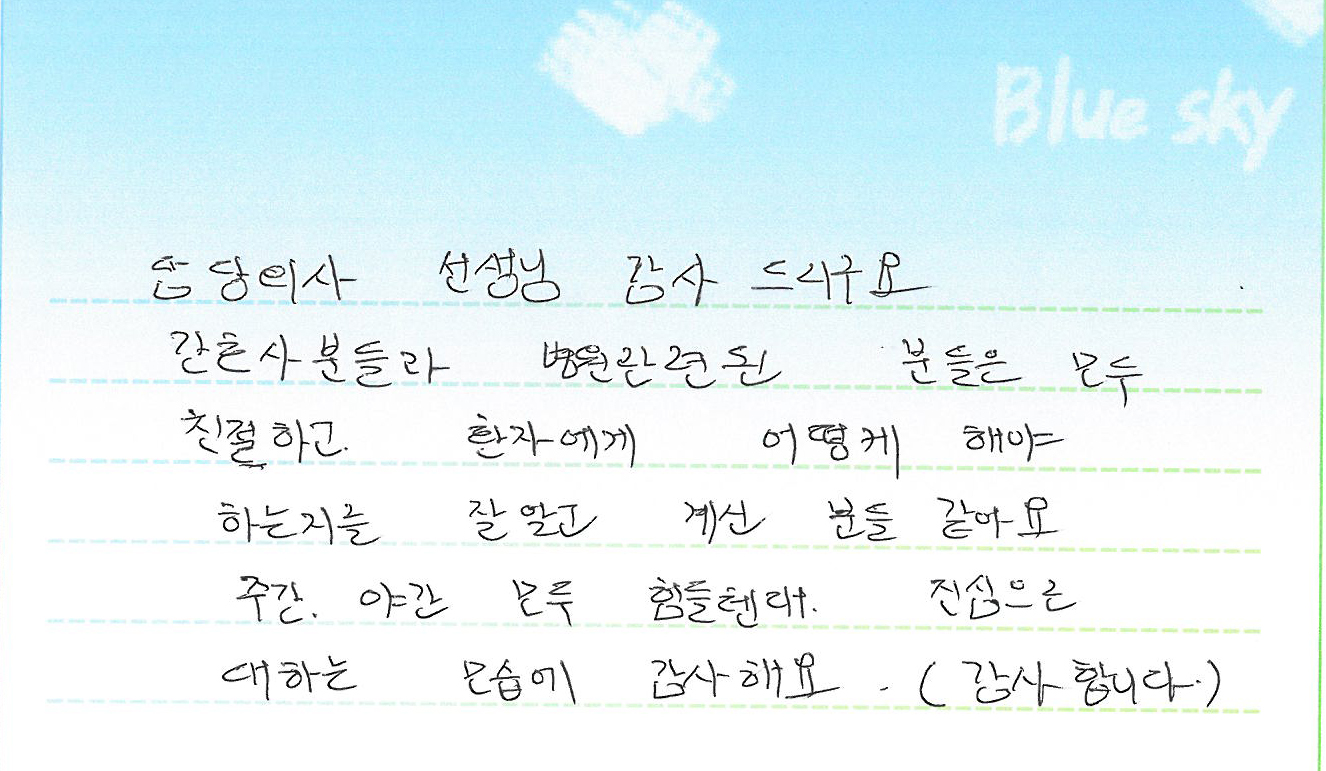 Blue sky
담당의사 선생님 감사 드리구요
간호사분들과 병원관련된 분들은 모두
친절하고. 환자에게 어떻게 해야
하는지를 잘알고 계신 분들 같아요
주간. 야간 모두 힘들텐데. 진심으로
대하는 모습에 감사해요. (감사합니다.)